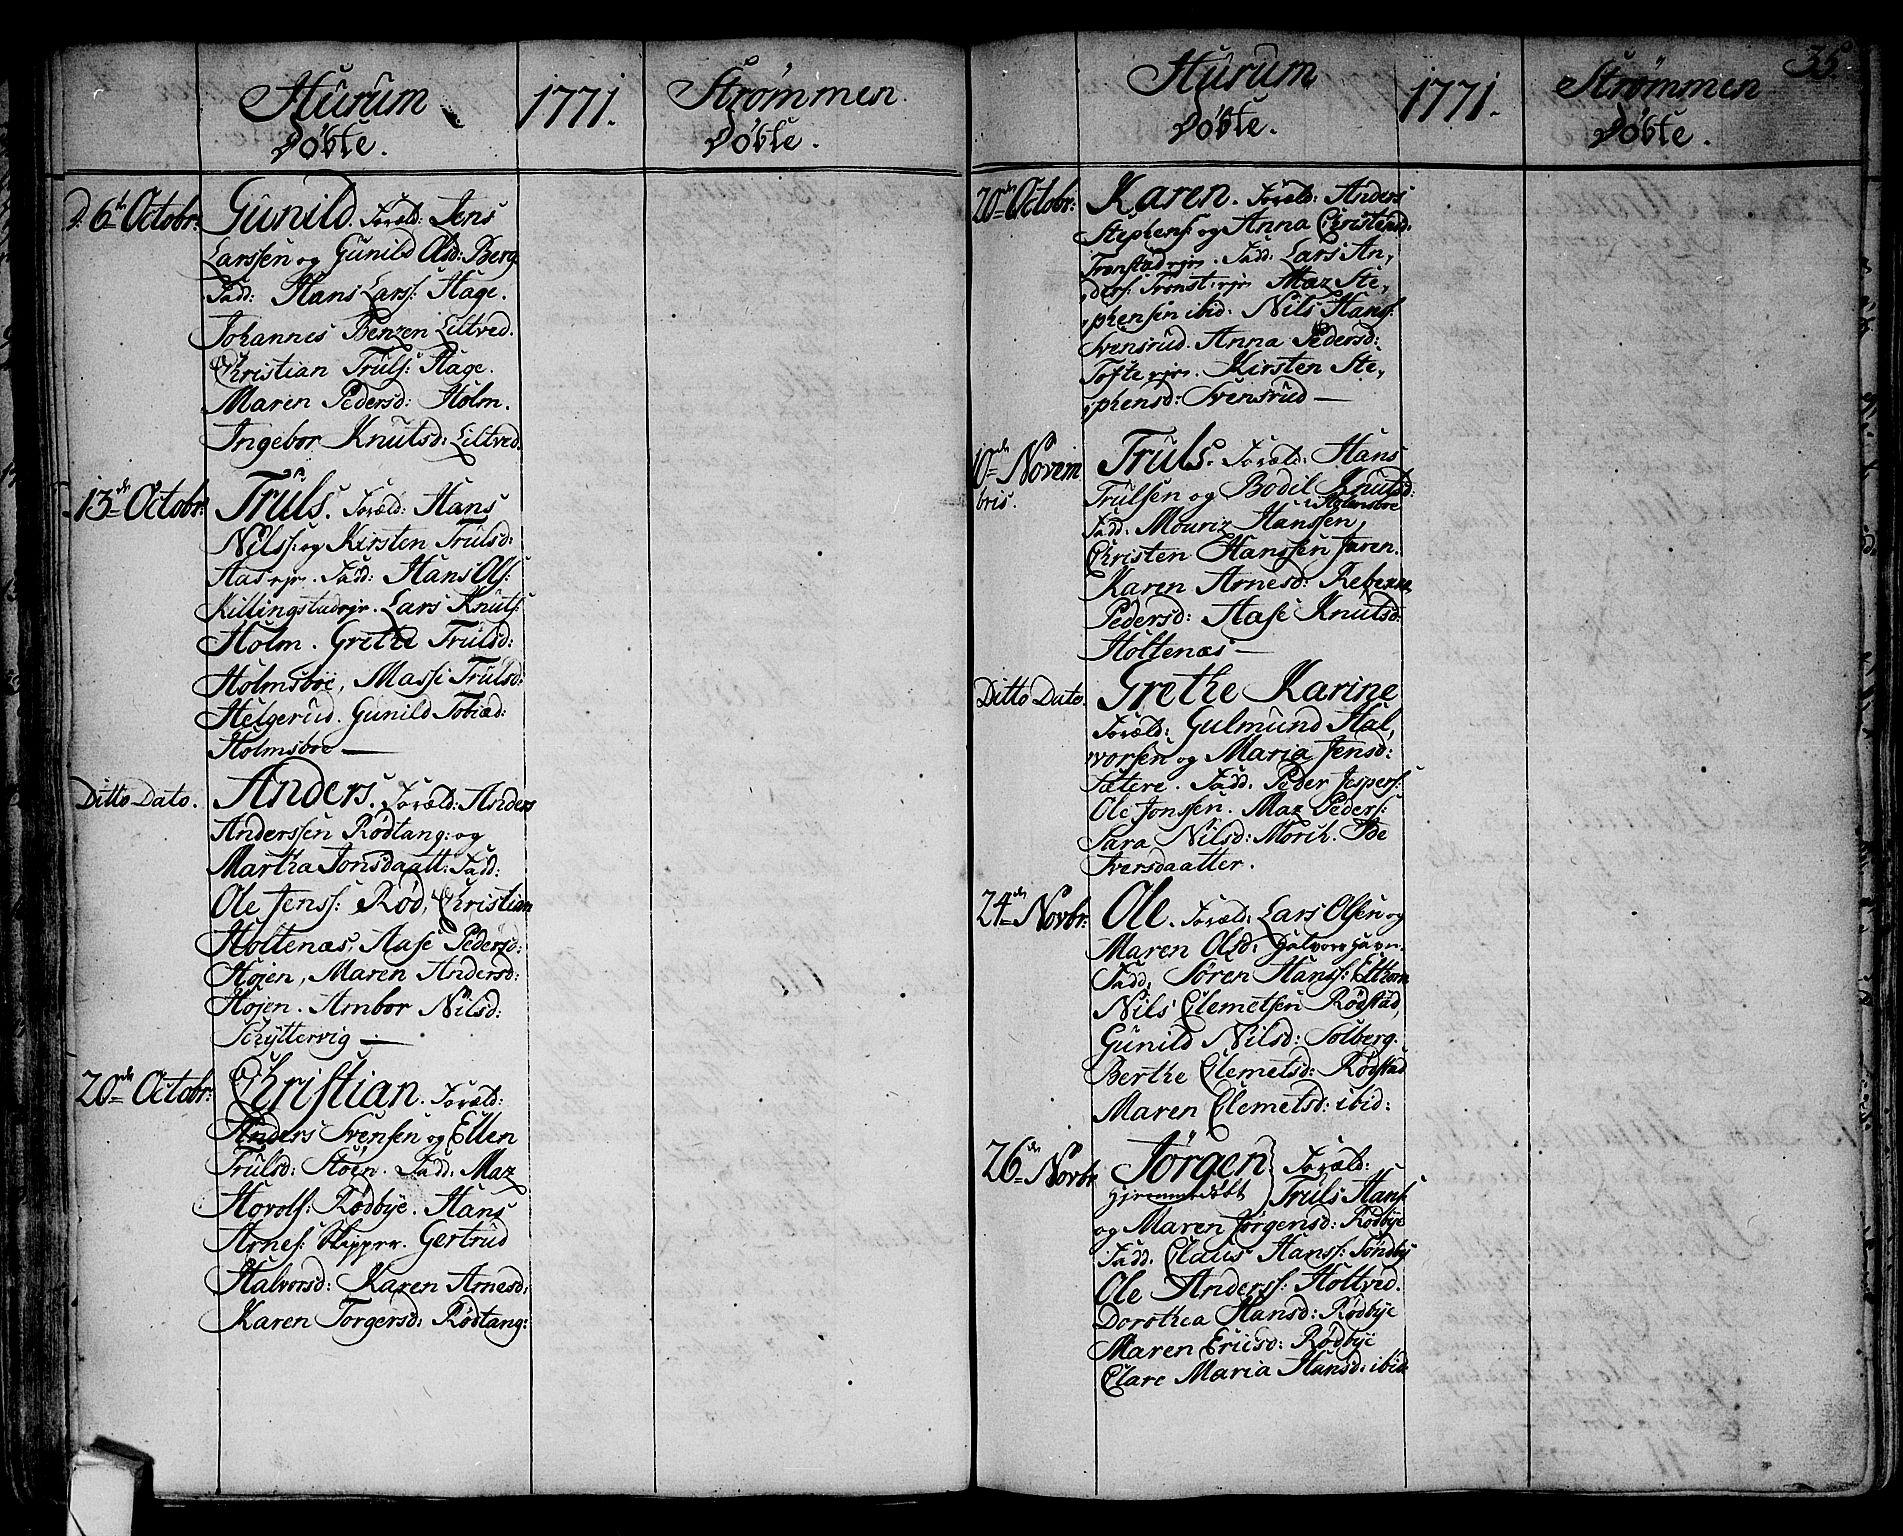 Hurum 1771. Strømmen.
Døbte. Døbte.
D. 6te Octobr: Gunild. Foræld: Jens
Larssen og Gunild Olsd: Berg
Fadd: Hans Larss: Hage.
Johannes Benzen Liltved.
Christian Truls: Hage.
Maren Pedersd: Holm.
Ingebor Knutsd: Liltved.
13de Octobr: Truls. Foræld: Hans
Nilss: og Kirsten Trulsd:
Aas ejr. Fadd: Hans Ols:
Killingstadejr. Lars Knuts:
Holm. Grethe Trulsd:
Holmsboe, Massi Trulsd:
Helgerud. Gunild Tobiæd:
Holmsboe —
Ditto Dato. Anders. Foræld: Anders
Anderssen Rødtang: og
Martha Jonsdaatt: Fadd:
Ole Jenss: Rød, Christian
Holtenæs, Aase Pedersd:
Hojen, Maren Andersd:
Hojen. Ambor Nilsd:
Schyttervig —
20de Octobr: Christian. Foræld:
Anders Svensen og Ellen
Trulsd: Støen. Fadd: Maz
Hovols: Rødbye. Hans
Arnes: Skipper. Gertrud
Halvorsd: Karen Arnesd:
Karen Torgersd: Rødtang:
35.
Hurum 1771. Strømmen
Døbte. Døbte.
20de Octobr: Karen. Foræld: Anders
Stephens: og Anna Christensd:
Tronstad ejr. Fadd: Lars An,
ders: Tronst: ejr Maz Ste,
phensen ibid. Nils Hans:
Svensrud. Anna Pedersd:
Tofte ejr. Kirsten Ste,
phensd: Svensrud —
10de Novem Truls. Foræld: Hans
bris. Trulsen og Bodil Knutsd:
Holmsboe
Fadd: Mouriz Hanssen,
Christen Hanssen Jaren.
Karen Arnesd: Rebecca
Pedersd: Aase Knutsd:
Holtenæs —
Ditto Dato. Grethe Karine
Foræld: Gulmund Hal,
vorsen og Maria Jensd:
Sætere. Fadd: Peder Jespers:
Ole Jonssen. Maz Peders:
Sara Nilsd: Morik. Ide
Iversdaatter.
24de Novbr: Ole. Foræld: Lars Olsen og
Maren Olsd: Halvorshavn.
Fadd, Søren Hanss:
Nils Clemetsen Rødstad,
Gunild Nilsd: Solberg.
Berthe Clemetsd: Rødstad
Maren Clemetsd: ibid:
26de Novbr Jørgen Foræld:
hjemmedøbt Truls Hans:
og Maren Jørgensd: Rødbye
Fadd. Claus Hanss: Tøndby
Ole Anderss: Holtved.
Dorothea Hansd: Rødbye
Maren Ericsd: Rødbye
Clare Maria Hansd: ibid: